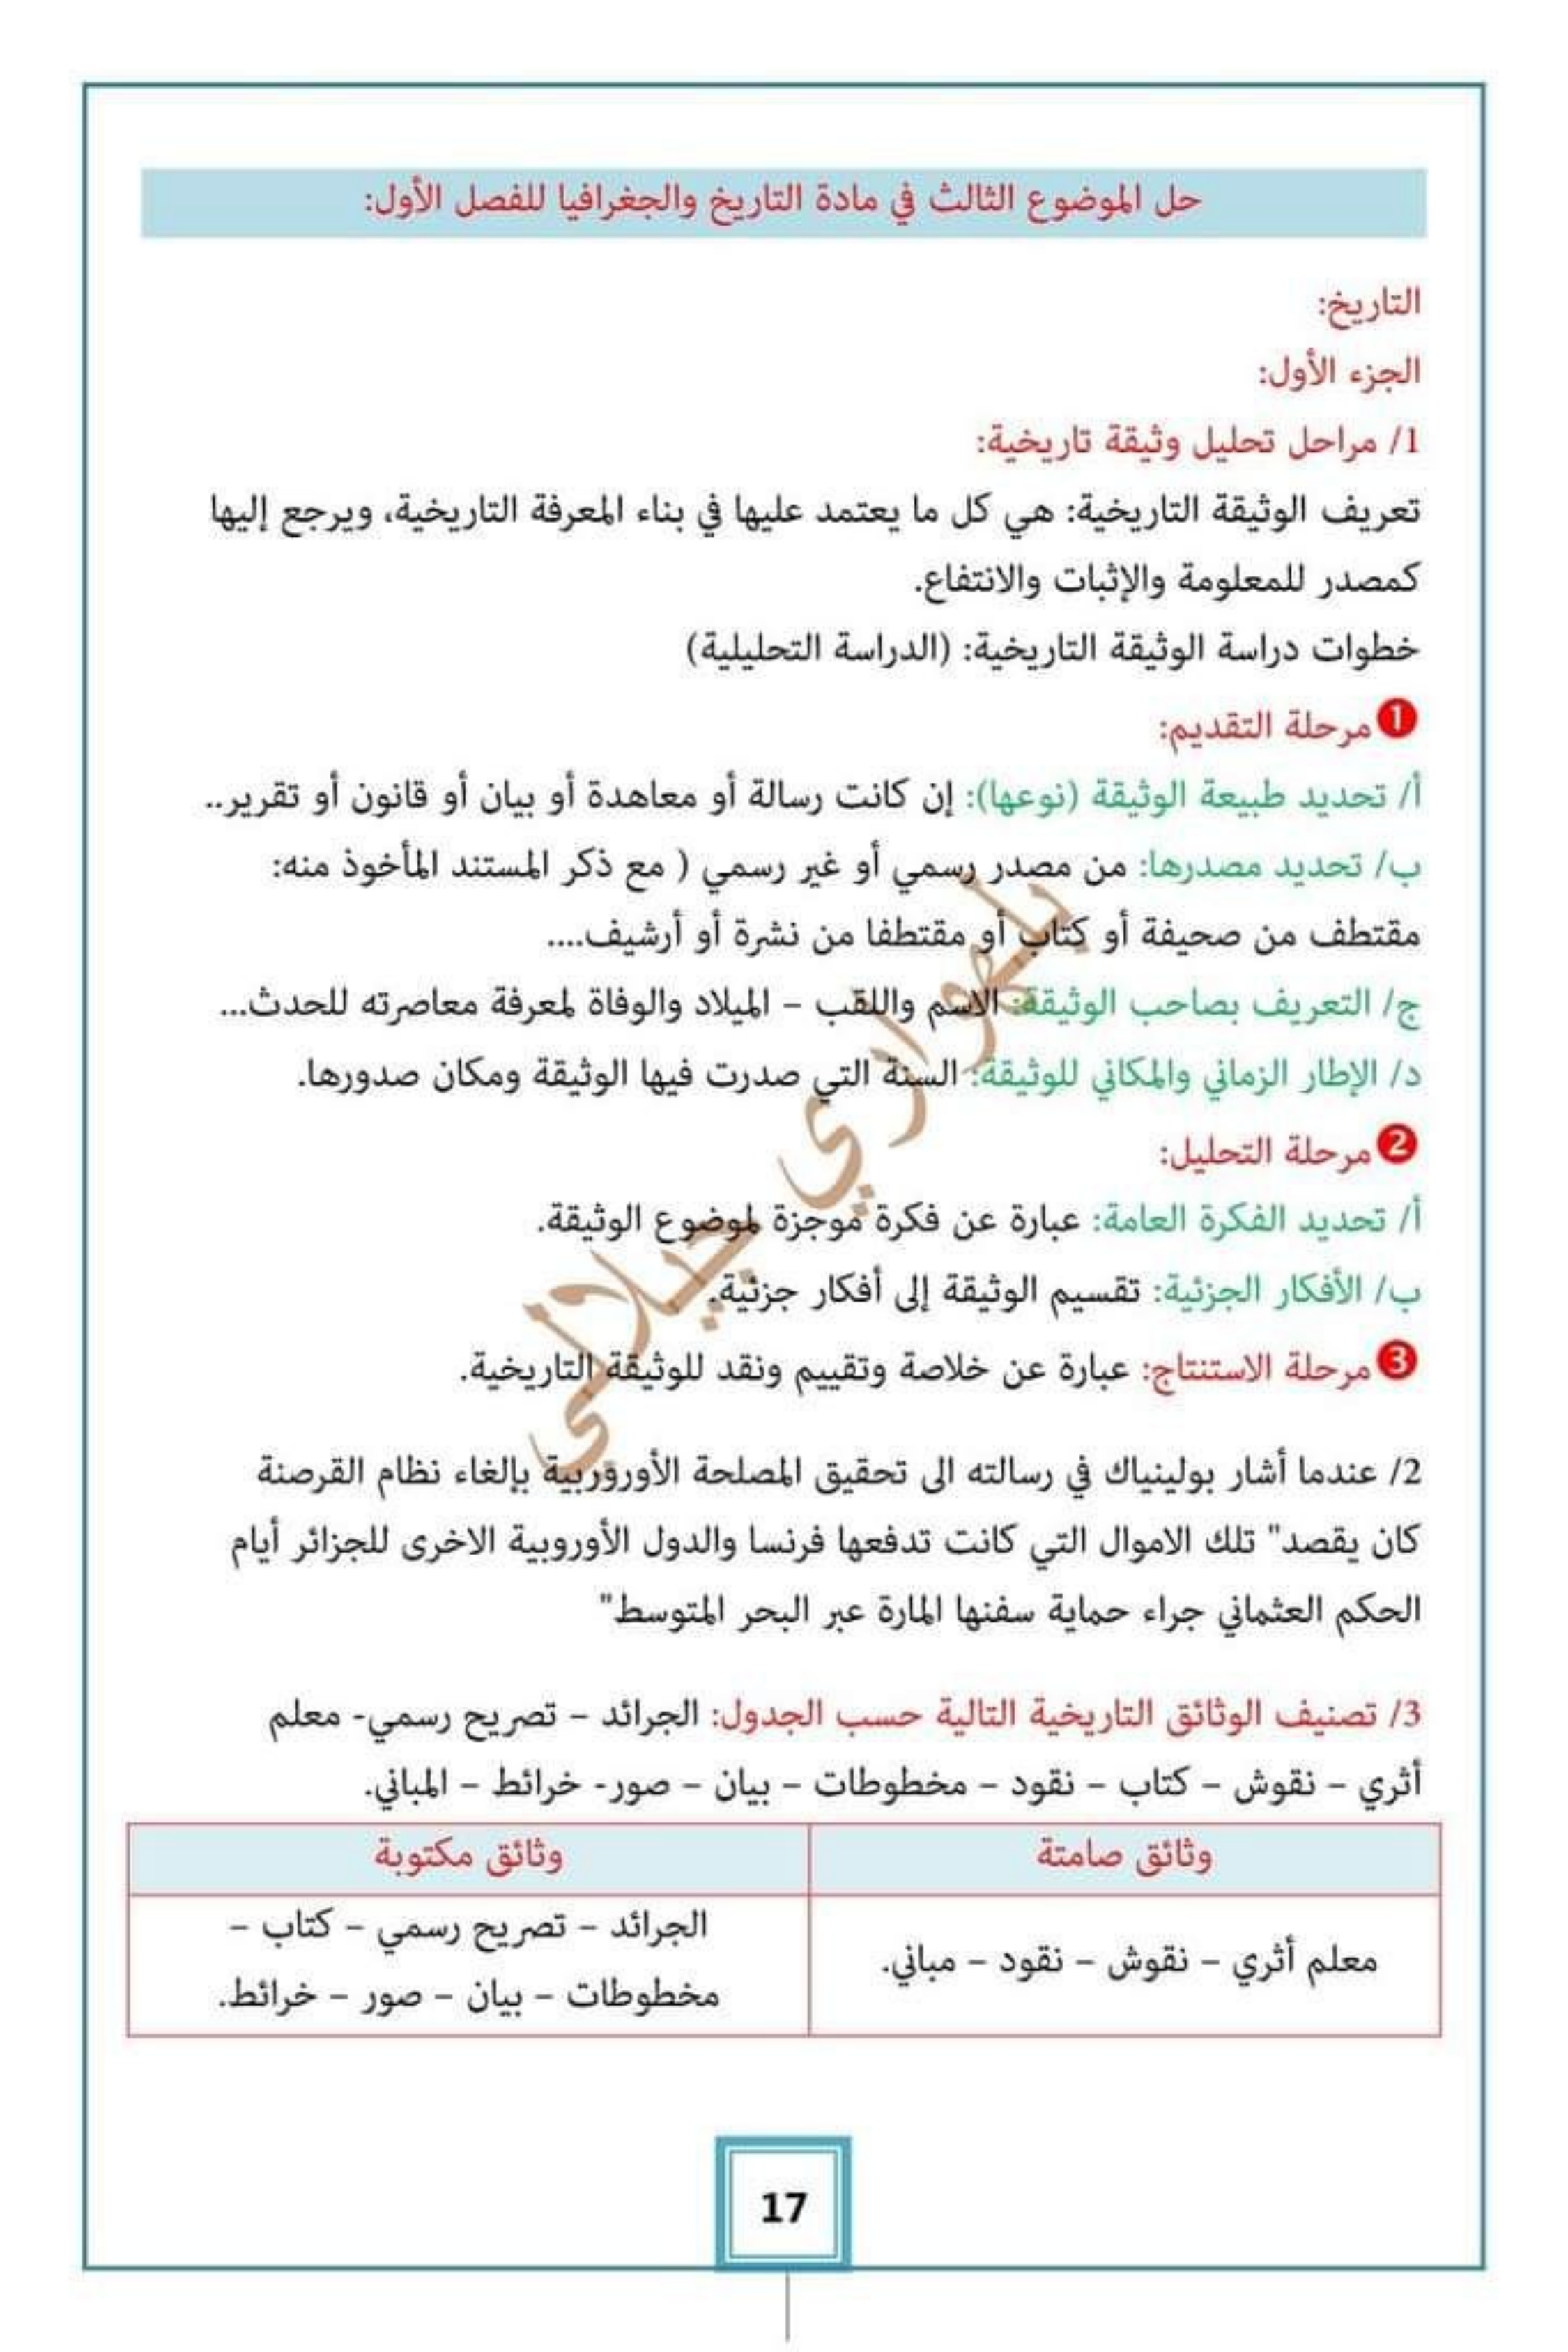 حل الموضوع الثالث في مادة التاريخ والجغرافيا للفصل الأول:
التاريخ:
الجزء الأول:
1/ مراحل تحليل وثيقة تاريخية:
تعريف الوثيقة التاريخية: هي كل ما يعتمد عليها في بناء المعرفة التاريخية، ويرجع إليها
كمصدر للمعلومة والإثبات والانتفاع.
خطوات دراسة الوثيقة التاريخية: (الدراسة التحليلية)
❶مرحلة التقديم:
أ/ تحديد طبيعة الوثيقة (نوعها): إن كانت رسالة أو معاهدة أو بيان أو قانون أو تقرير..
ب/ تحديد مصدرها: من مصدر رسمي أو غير رسمي ( مع ذكر المستند المأخوذ منه:
مقتطف من صحيفة أو كتاب أو مقتطفا من نشرة أو أرشيف....
ج/ التعريف بصاحب الوثيقة: الاسم واللقب – الميلاد والوفاة لمعرفة معاصرته للحدث...
د/ الإطار الزماني والمكاني للوثيقة: السنة التي صدرت فيها الوثيقة ومكان صدورها.
❷مرحلة التحليل:
أ/ تحديد الفكرة العامة: عبارة عن فكرة موجزة لموضوع الوثيقة.
ب/ الأفكار الجزئية: تقسيم الوثيقة إلى أفكار جزئية.
❸مرحلة الاستنتاج: عبارة عن خلاصة وتقييم ونقد للوثيقة التاريخية.
2/ عندما أشار بولينياك في رسالته الى تحقيق المصلحة الأوروربية بإلغاء نظام القرصنة
كان يقصد" تلك الاموال التي كانت تدفعها فرنسا والدول الأوروبية الاخرى للجزائر أيام
الحكم العثماني جراء حماية سفنها المارة عبر البحر المتوسط"
3/ تصنيف الوثائق التاريخية التالية حسب الجدول: الجرائد – تصريح رسمي- معلم
أثري – نقوش – كتاب – نقود – مخطوطات – بيان – صور- خرائط – المباني.
وثائق صامتة
وثائق مكتوبة
معلم أثري – نقوش – نقود – مباني.
الجرائد – تصريح رسمي – كتاب –
مخطوطات – بيان – صور – خرائط.
بلهواري جيلالي
17